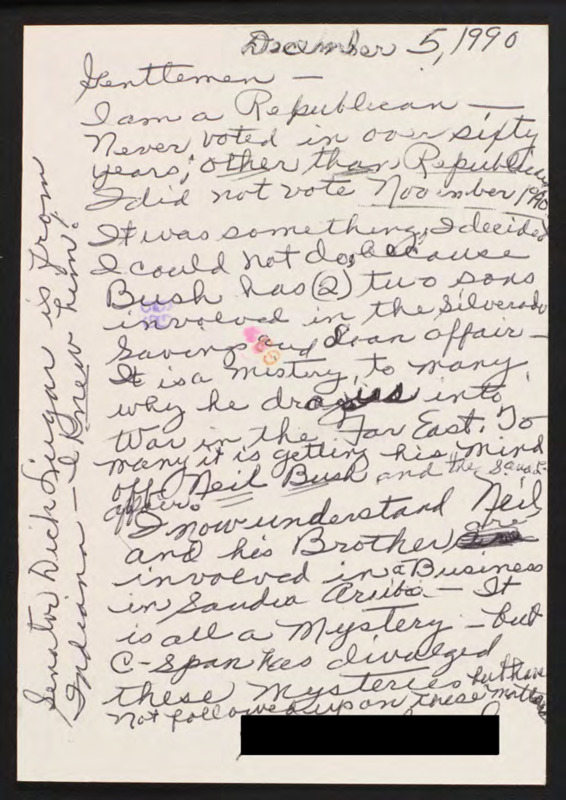 December 5, 1990
Gentlemen —
I am a Republican —
Never voted in over sixty
years, other than Republican
I did not vote November 1990
It was something, I decided
I could not do, because
Bush has (2) two sons
involved in the Silverado
Savings and Loan affair —
It is a mistery, to many
why he drages us into
War in the Far East. To
many it is getting his mind
off Neil Bush and the
affair.
I now understand Neil
and his Brother are
involved in a Business
in Saudia Ariba — It
is all a Mystery — but
C-Span has divulged
these mysteries but have
not followed up on these matters
Senator Dick Lugar is from
Indiana — I knew him!